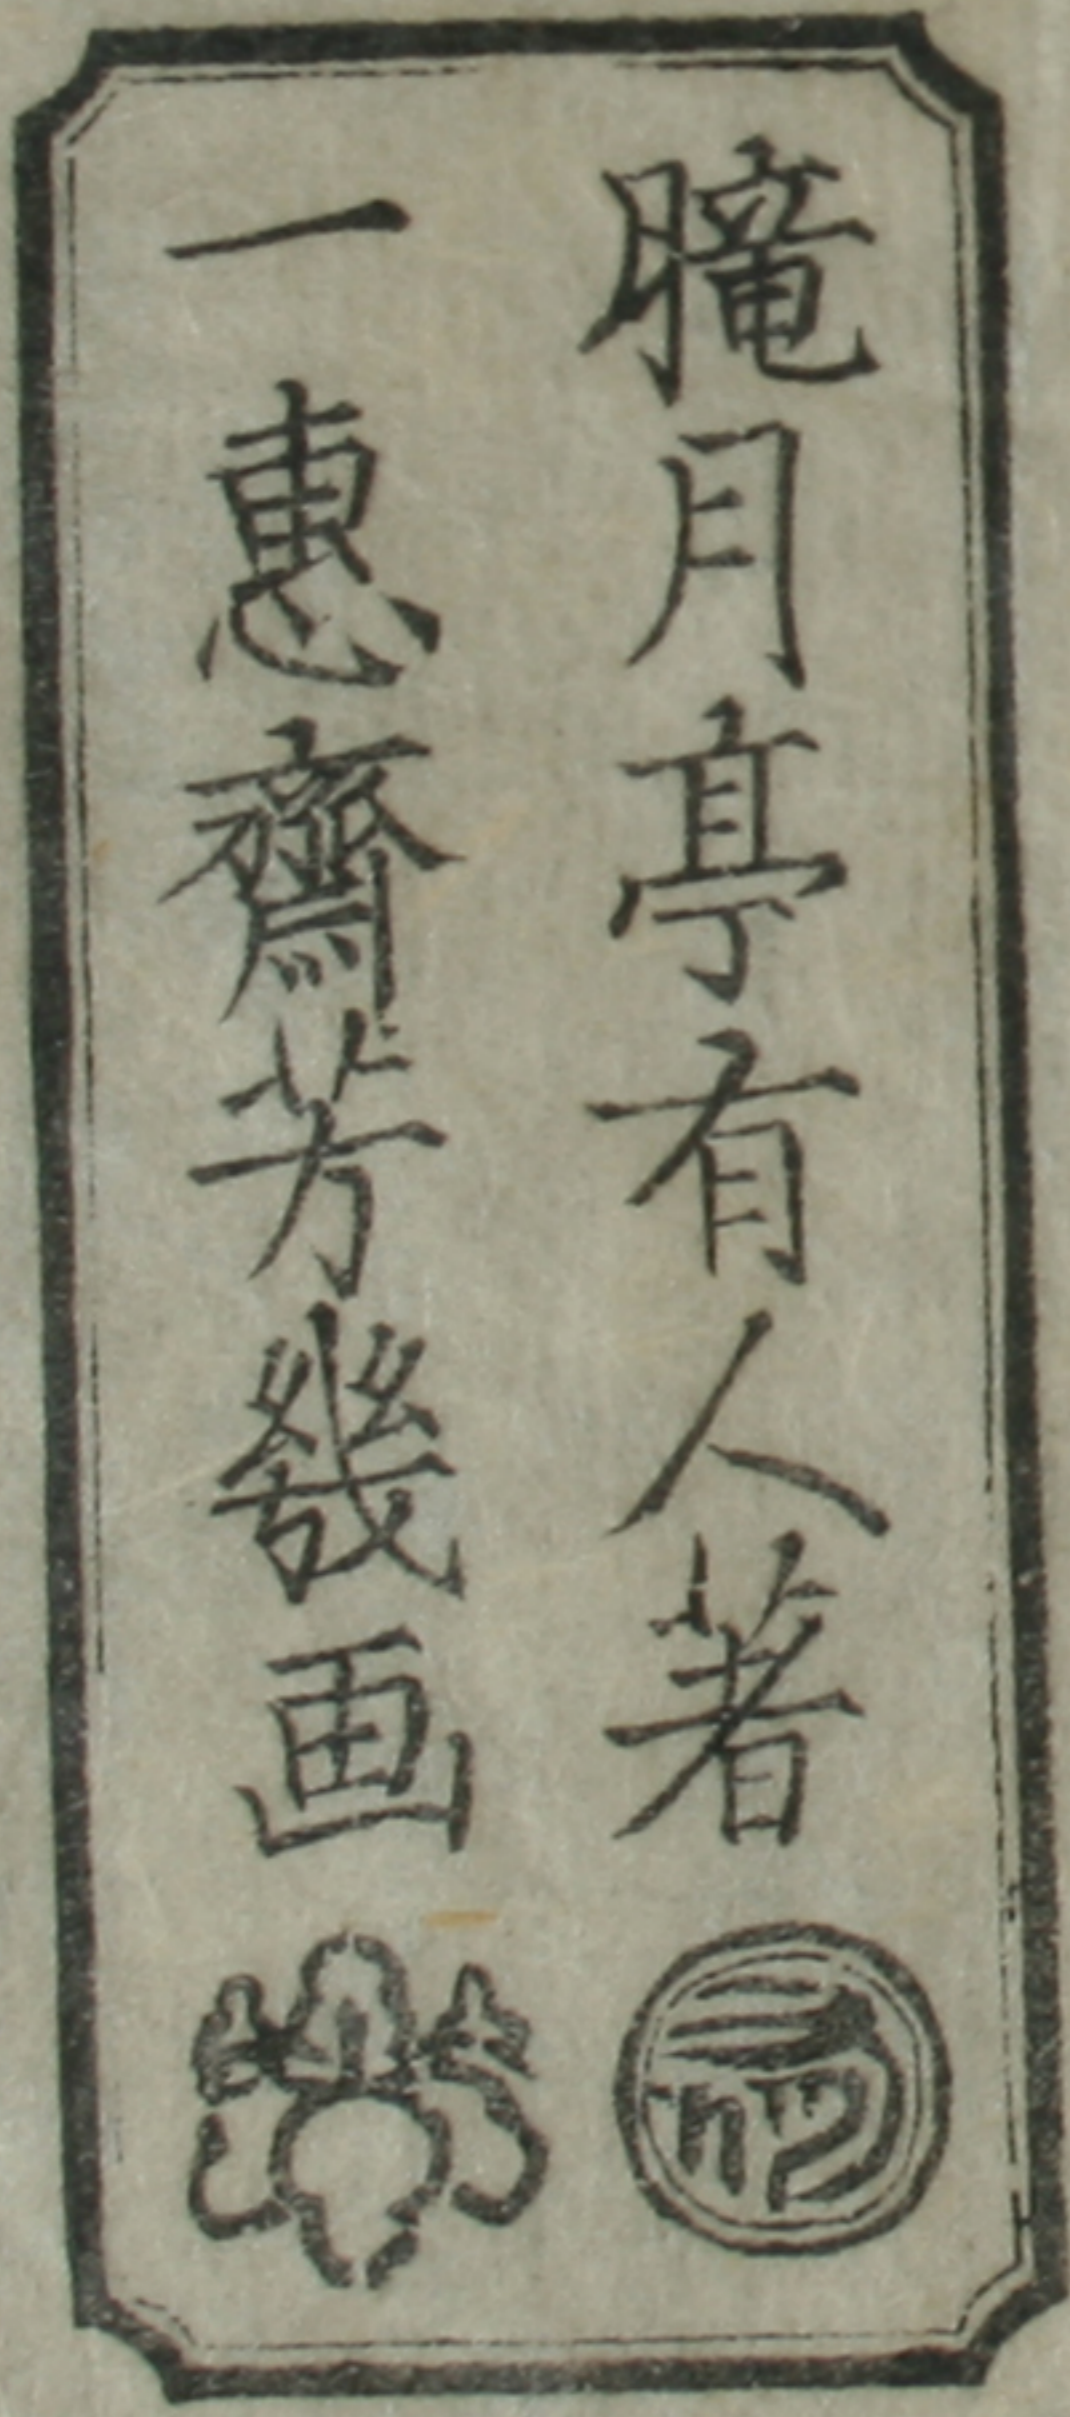 朧月亭有人著
一惠齋芳幾画